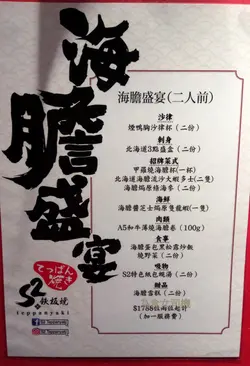 海膽盛宴
海膽盛宴(二人前)
沙律
煙鴨胸沙律杯(二份)
刺身
北海道3點盛盒(二份)
招牌菜式
甲羅燒海膽杯(一杯)
北海道海膽流沙大蝦多士(二隻)
海膽焗原條海參(二份)
海鮮
海膽醬芝士焗原隻龍蝦(一隻)
肉類
A5和牛薄燒海膽卷(100g)
食事
海膽蛋包黑松露炒飯
燒野菜(二份)
吸物
S2特色紙包碗湯(二份)
甜品
海膽雪糕(二份)
$1788
(加一服務費)
てっぱん焼き
S2鉄板燒
teppanyaki
S2.Teppanyaki